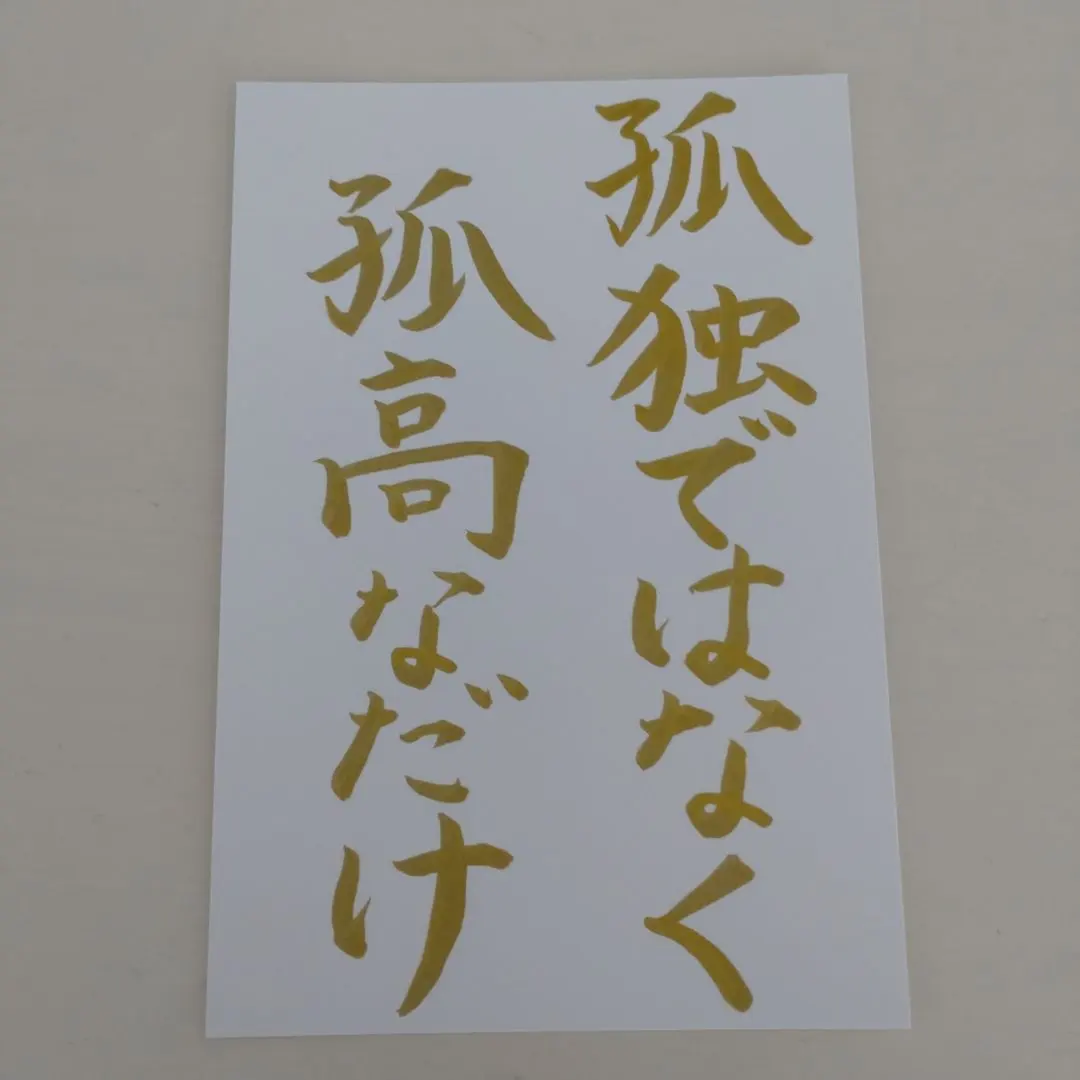 孤独ではなく
孤高なだけ